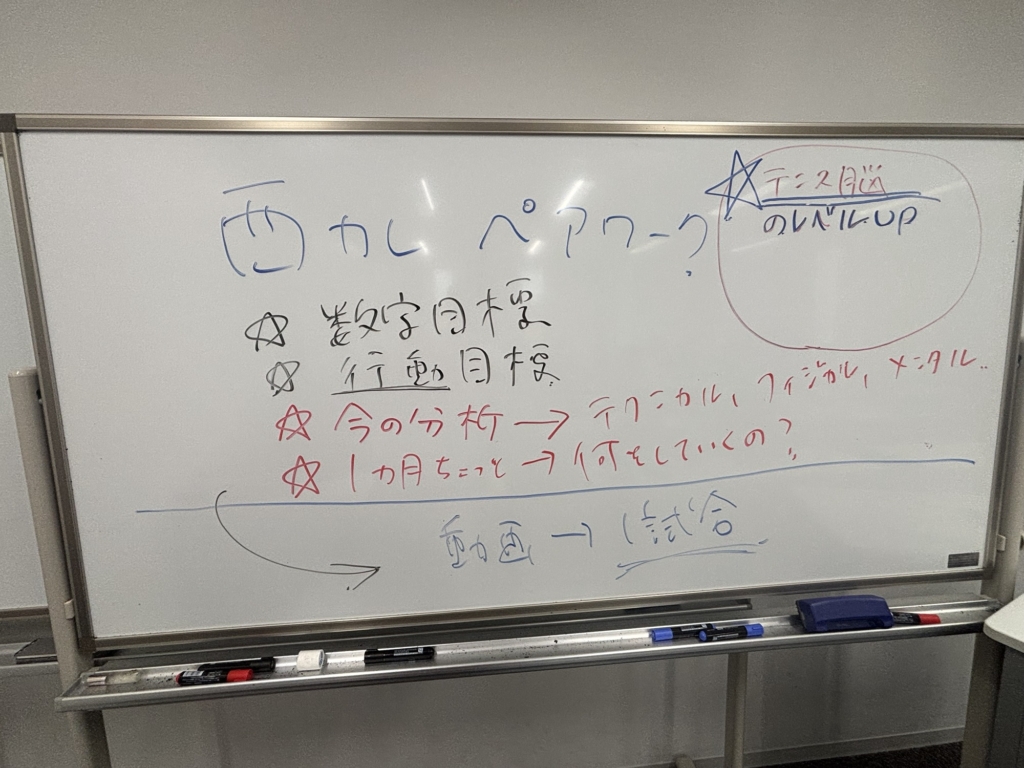 西カレ ペアワーク?
☆ テニス脳
のレベルUP
☆ 数字目標
☆ 行動目標
☆ 今の分析 → テクニカル、フィジカル、メンタル..
☆ 1カ月ちょっと → 何をしていくの?
動画 → 1試合